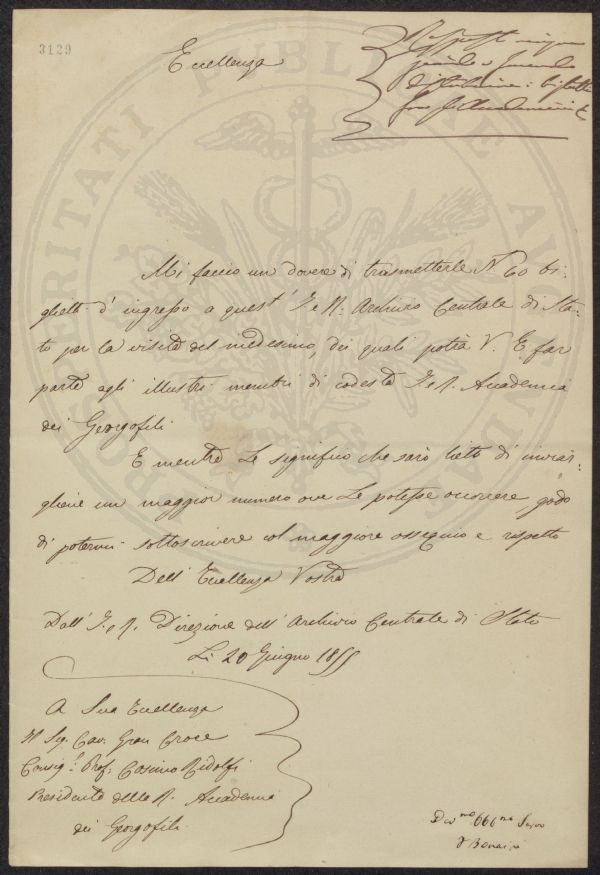 3129
Eccellenza
distribuire i biglietti
Mi faccio un dovere di trasmetterle N. 60 bi-
glietti d'ingresso a quest' I. e R. Archivio Centrale di Sta-
to per la visita del medesimo, dei quali potrà V. E. far
parte agli illustri membri di codesta I. e R. Accademia
dei Georgofili.
E mentre Le significo che sarò lieto di inviar-
gliene un maggior numero ove Le potesse occorrere, godo
di potermi sottoscrivere col maggiore ossequio e rispetto
Dell' Eccellenza Vostra
Dall' I. e R. Direzione dell' Archivio Centrale di Stato
Li 20 Giugno 1855
A Sua Eccellenza
Il Sig. Cav. Gran Croce
Consig. Prof. Cosimo Ridolfi
Presidente della R. Accademia
dei Georgofili
Dev.mo Obb.mo Servo
F Bonaini
PROSPERITATI PUBLICAE AUGENDAE